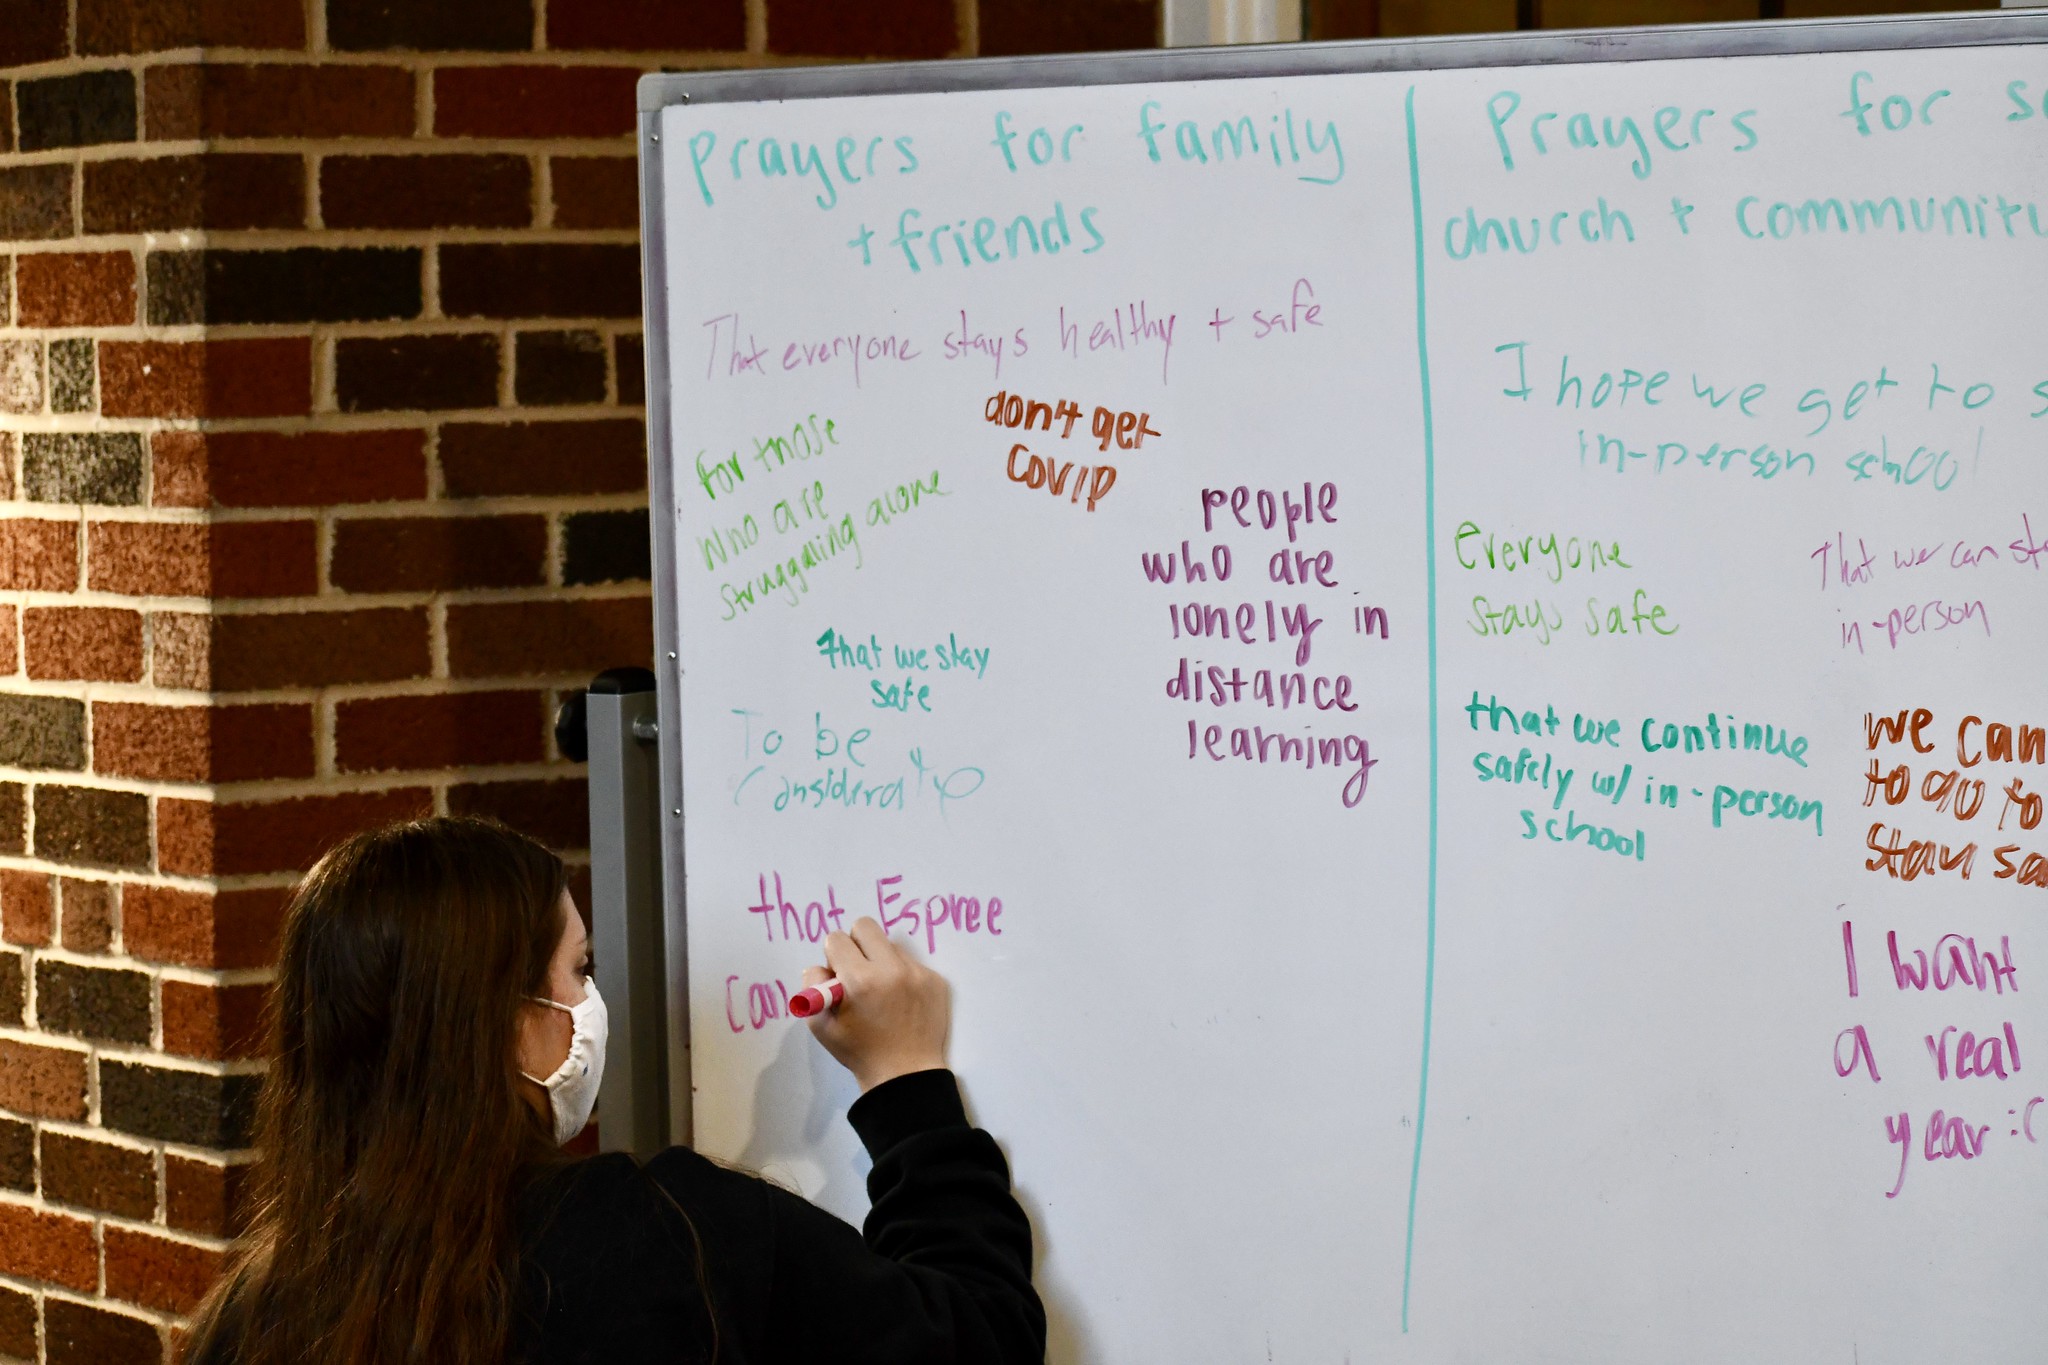 Prayers for family
+ friends
That everyone stays healthy + safe
for those
who are
struggling alone
don't get
COVID
people
who are
lonely in
distance
learning
that we stay
safe
To be
that Espree
can
Prayers for
church + community
I hope we get to
in-person school
everyone
stays safe
That we can
in-person
that we continue
safely w/ in-person
school
we can
to go to
stay
I want
a real
year :(